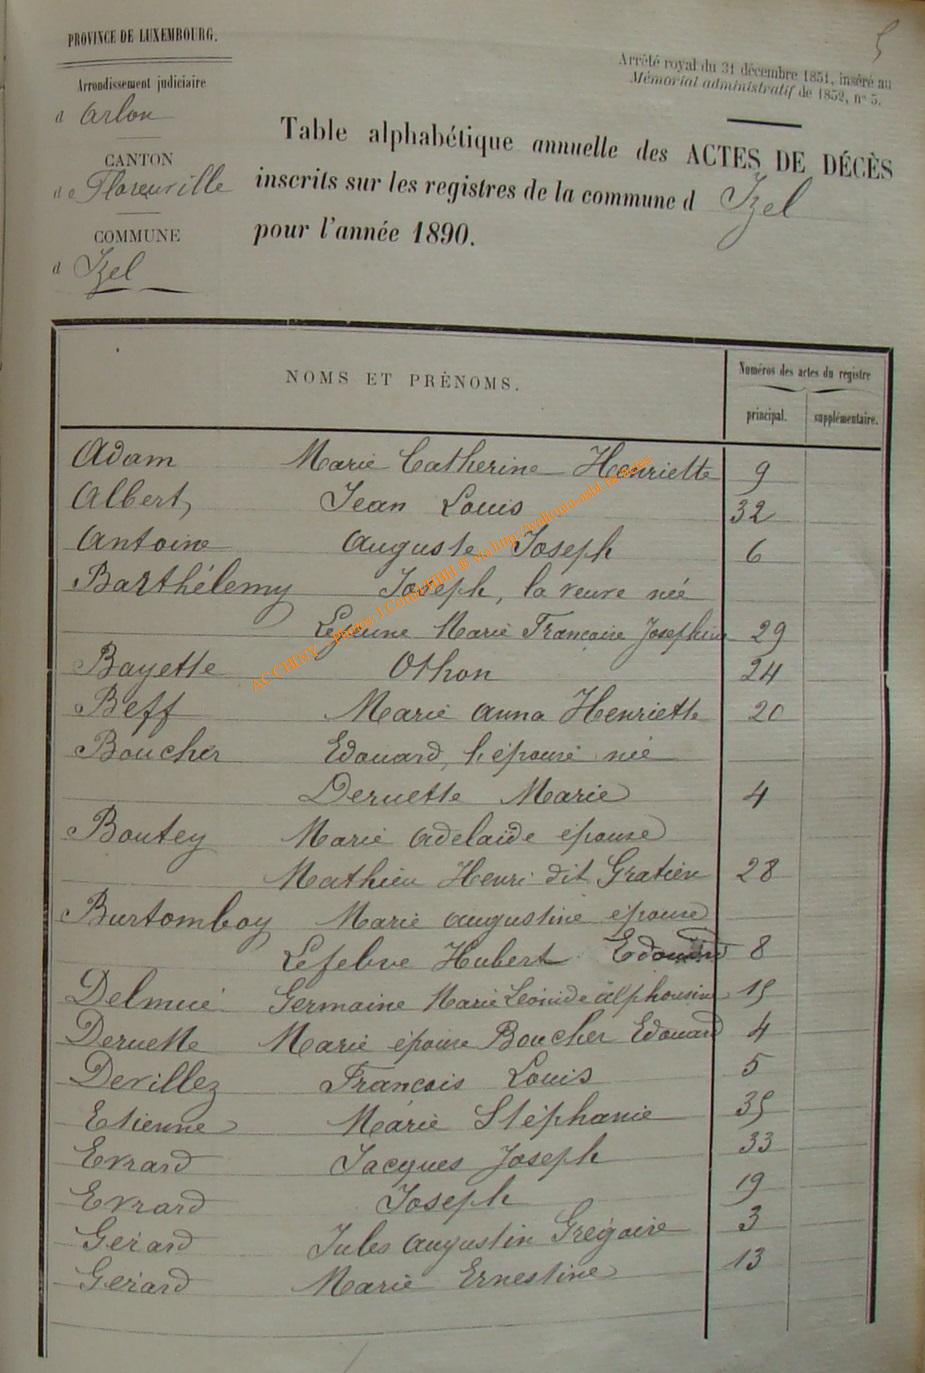 5
PROVINCE DE LUXEMBOURG.
Arrondissement judiciaire
d Arlon
CANTON
de Florenville
COMMUNE
d Izel
Arrêté royal du 31 décembre 1851, inséré au
Mémorial administratif de 1852, n° 5.
Table alphabétique annuelle des ACTES DE DÉCÈS
inscrits sur les registres de la commune d Izel
pour l'année 1890.
NOMS ET PRÉNOMS.
Numéros des actes du registre
principal. supplémentaire.
Adam Marie Catherine Henriette 9
Albert, Jean Louis 32
Antoine Auguste Joseph 6
Barthélemy Joseph, la veuve née
Lejeune Marie Françoise Josephine 29
Bayette Othon 24
Beff Marie Anna Henriette 20
Boucher Edouard, l'épouse née
Deruette Marie 4
Boutey Marie Adelaïde épouse
Mathieu Henri dit Gratien 28
Burtomboy Marie Augustine épouse
Lefebvre Hubert Edouard 8
Delmué Germaine Marie Léonide Alphonsine 15
Deruette Marie épouse Boucher Edouard 4
Devillez François Louis 5
Etienne Marie Stéphanie 35
Evrard Jacques Joseph 33
Evrard Joseph 19
Gérard Jules Augustin Grégoire 3
Gérard Marie Ernestine 13